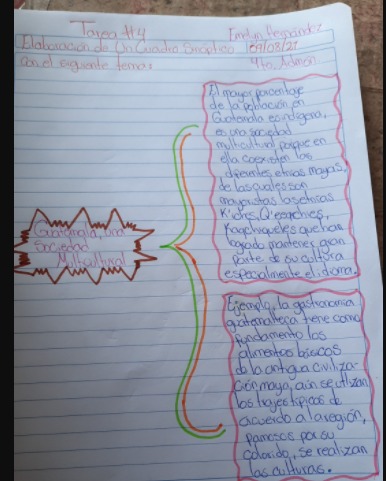 Tarea #4
Emelyn Hernández
Elaboración de Un Cuadro Sinóptico
09/08/21
con el siguiente tema:
4to. Admón
Guatemala, una
Sociedad
Multicultural
El mayor porcentaje
de la población en
Guatemala es indígena,
es una sociedad
multicultural porque en
ella coexisten las
diferentes etnias mayas,
de las quales son
mayoristas las etnias
K'iches, Q'eqchies,
Kaqchiqueles que han
logrado mantener gran
parte de su cultura
especialmente el idioma.
Ejemplo, la gastronomia
guatemalteca tiene como
fundamento los
alimentos básicos
de la antigua civiliza-
ción maya, aún se utilizan
los trajes típicos de
acuerdo a la región,
famosos por su
colorido, se realizan
las culturas.